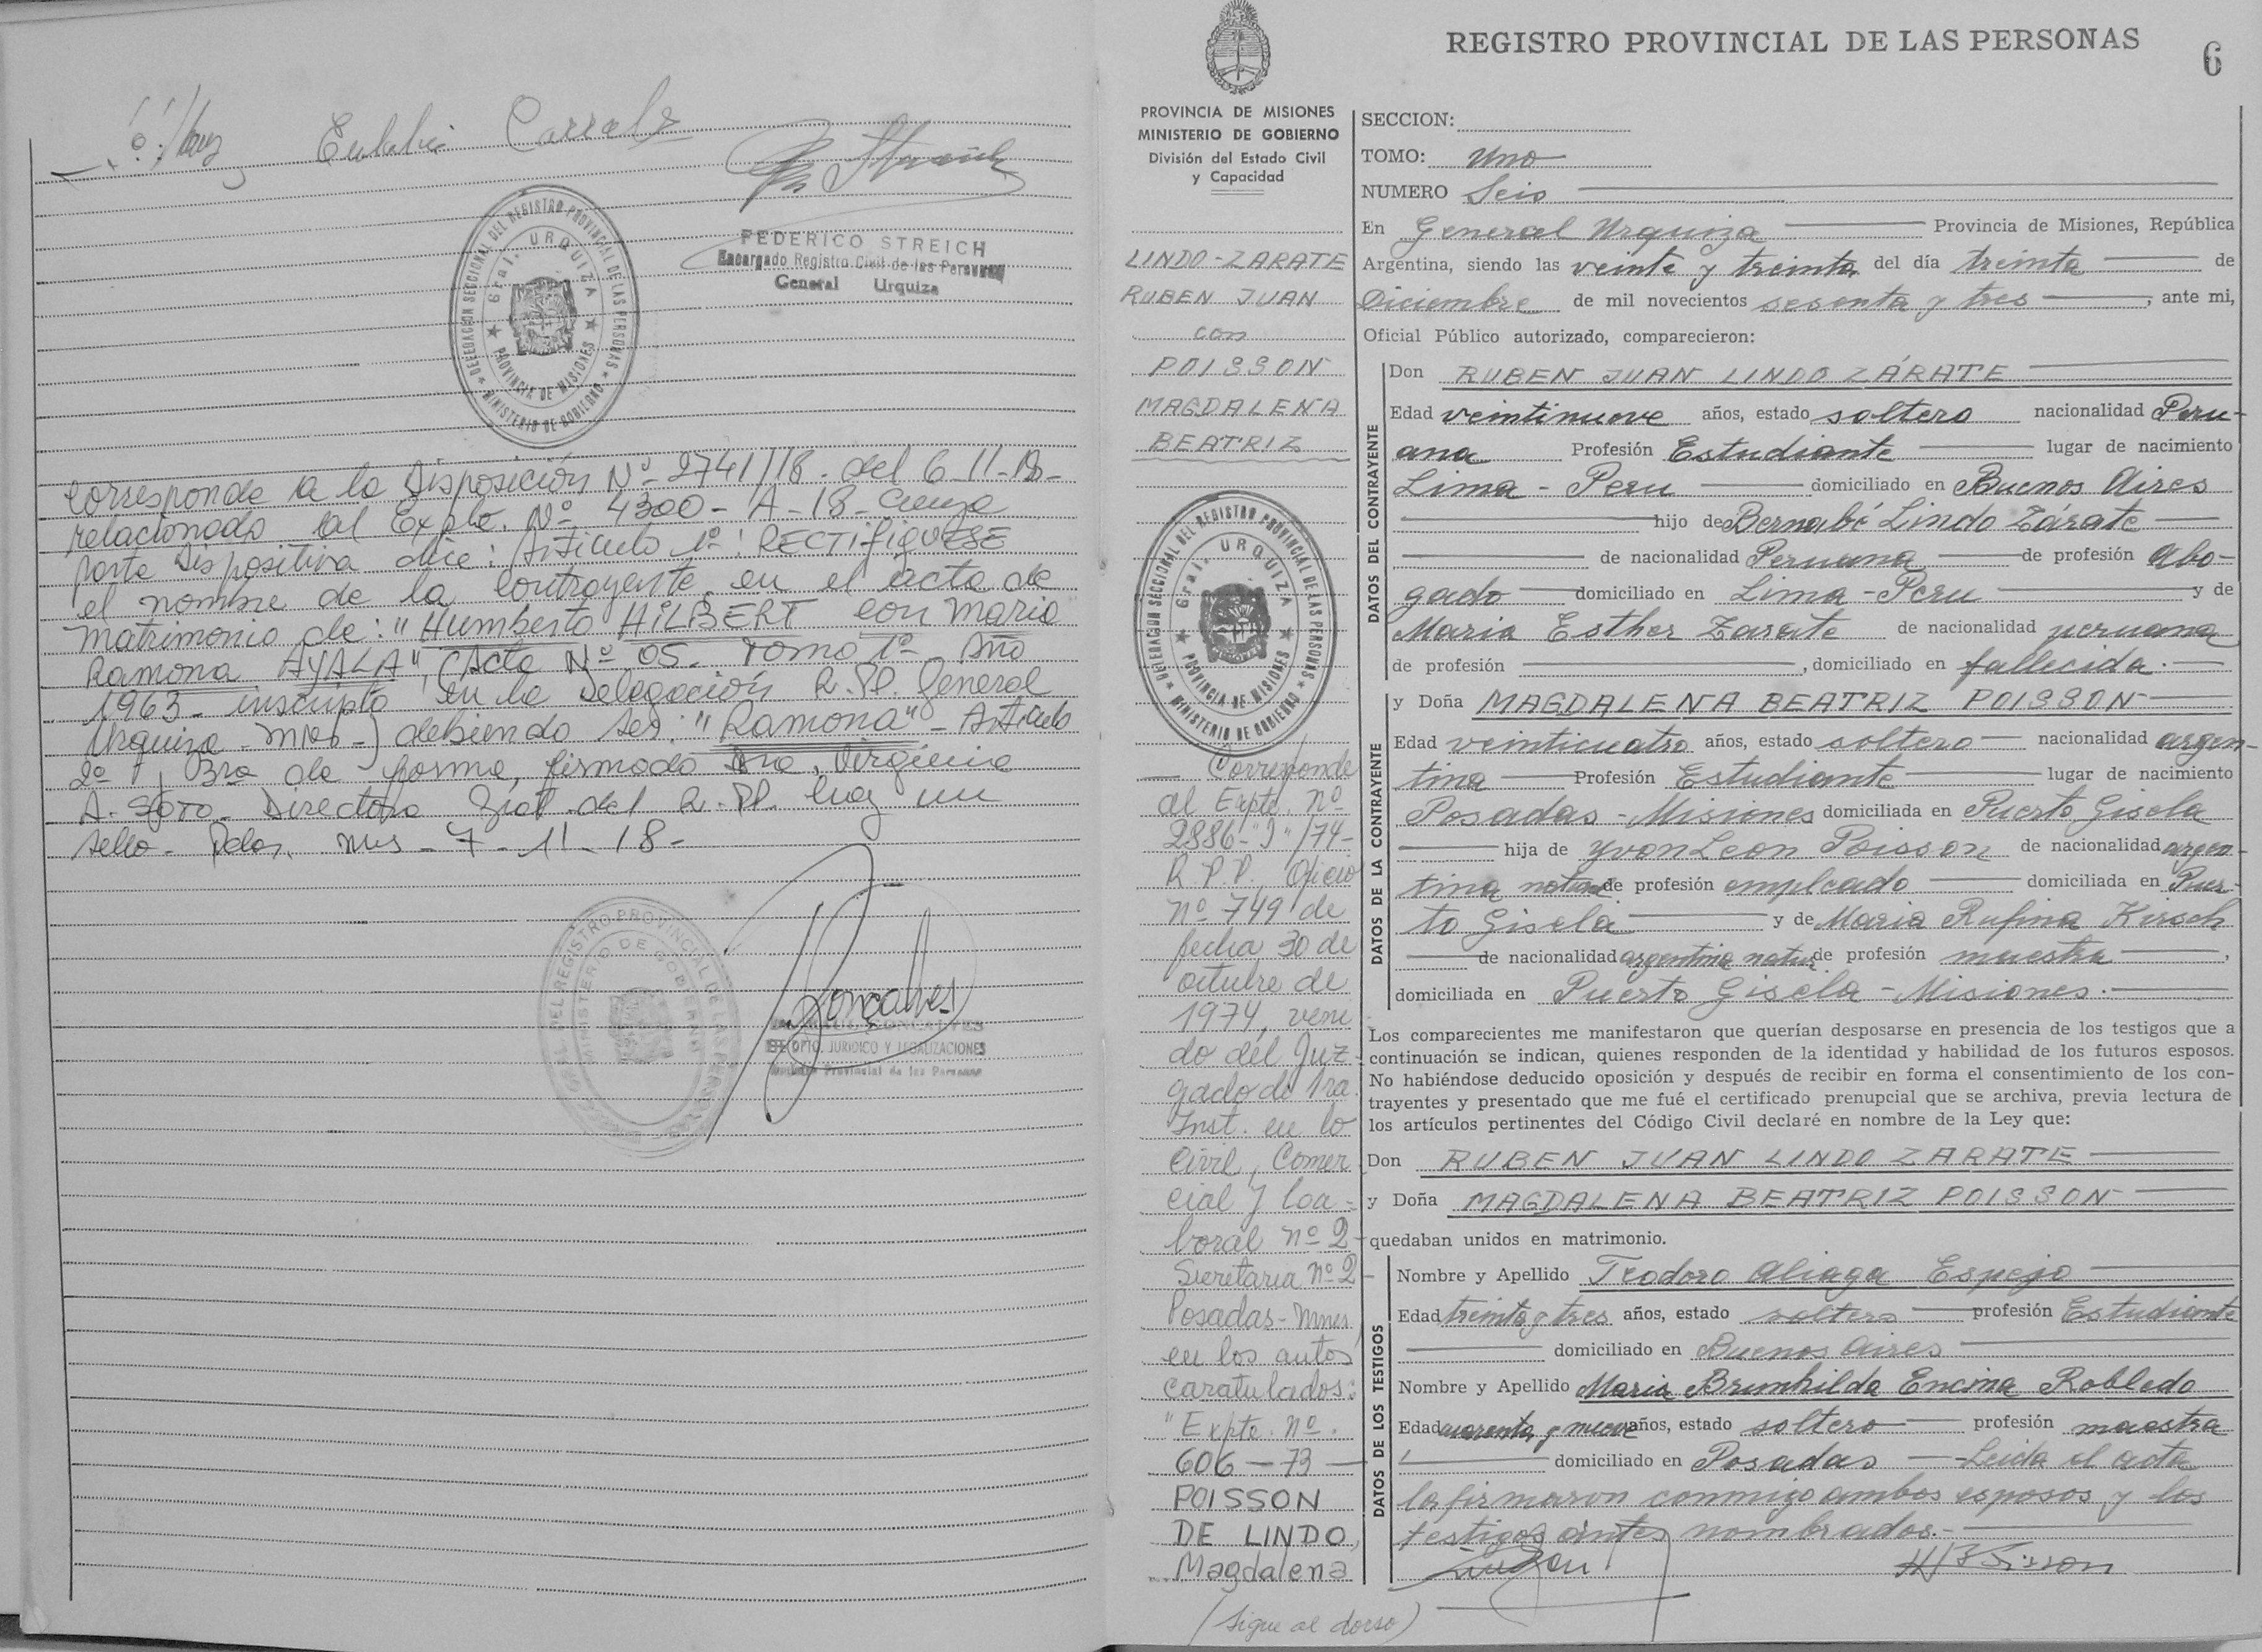 Eulalia
FEDERICO STREICH
Encargado Registro Civil de las Personas
General Urquiza
DELEGACION SECCIONAL DEL REGISTRO PROVINCIAL DE LAS PERSONAS
Gral. URQUIZA
PROVINCIA DE MISIONES
MINISTERIO DE GOBIERNO
Corresponde a la Disposición Nº 2741/18. del 6-11-18-
relacionado al Expte. Nº 4300-A-18- cuya
parte Dispositiva dice: Articulo 1º: RECTIFIQUESE
el nombre de la contrayente, en el acta de
matrimonio de: "Humberto HILBERT con Maria
Ramona AYALA", (Acta Nº 05. Tomo 1º Año
1963- inscripta en la Delegación R.P.P. General
Urquiza-Mnes-) debiendo ser: "Ramona"- Articulo
2º, 3ro de forma, firmado Dra. Virginia
A. Directora Gral. del R.P.P. hay un
sello- Pdas. Mns-7-11-18-
DEL REGISTRO PROVINCIAL DE LAS PERSONAS
MINISTERIO DE GOBIERNO
GONCALVES
DPTO. JURIDICO Y LEGALIZACIONES
Provincial de las Personas
REGISTRO PROVINCIAL DE LAS PERSONAS
6
PROVINCIA DE MISIONES
MINISTERIO DE GOBIERNO
División del Estado Civil
y Capacidad
LINDO-ZARATE
RUBEN JUAN
con
POISSON
MAGDALENA
BEATRIZ
DELEGACION SECCIONAL DEL REGISTRO PROVINCIAL DE LAS PERSONAS
Gral. URQUIZA
PROVINCIA DE MISIONES
MINISTERIO DE GOBIERNO
Corresponde
al Expte. nº
2886-"J"/74-
R.P.P. Oficio
nº 749 de
fecha 30 de
octubre de
1974, veni
do del Juz-
gado de 1ra.
Inst. en lo
Civil, Comer
cial y Loa-
boral nº 2-
Secretaria nº 2-
Posadas-Mnes.
en los autos
caratulados:
"Expte. nº.
606-73-
POISSON
DE LINDO,
Magdalena
(Sigue al dorso)
SECCION:
TOMO: Uno
NUMERO Seis
En General Urquiza Provincia de Misiones, República
Argentina, siendo las veinte y treinta del día treinta de
Diciembre de mil novecientos sesenta y tres, ante mi,
Oficial Público autorizado, comparecieron:
DATOS DEL CONTRAYENTE
Don RUBEN JUAN LINDO ZÁRATE
Edad veintinueve años, estado soltero nacionalidad Peru-
ana Profesión Estudiante lugar de nacimiento
Lima - Peru domiciliado en Buenos Aires
hijo de Bernabé Lindo Zárate
de nacionalidad Peruana de profesión Abo-
gado domiciliado en Lima-Peru y de
Maria Esther Zarate de nacionalidad peruana
de profesión , domiciliado en fallecida.
DATOS DE LA CONTRAYENTE
y Doña MAGDALENA BEATRIZ POISSON
Edad veinticuatro años, estado soltera nacionalidad argen-
tina Profesión Estudiante lugar de nacimiento
Posadas - Misiones domiciliada en Puerto Gisela
hija de Yvon Leon Poisson de nacionalidad argen-
tina natur de profesión empleado domiciliada en Puer-
to Gisela y de Maria Rufina Kirsch
de nacionalidad argentina natur de profesión maestra,
domiciliada en Puerto Gisela - Misiones.
Los comparecientes me manifestaron que querían desposarse en presencia de los testigos que a
continuación se indican, quienes responden de la identidad y habilidad de los futuros esposos.
No habiéndose deducido oposición y después de recibir en forma el consentimiento de los con-
trayentes y presentado que me fué el certificado prenupcial que se archiva, previa lectura de
los artículos pertinentes del Código Civil declaré en nombre de la Ley que:
Don RUBEN JUAN LINDO ZARATE
y Doña MAGDALENA BEATRIZ POISSON
quedaban unidos en matrimonio.
DATOS DE LOS TESTIGOS
Nombre y Apellido Teodoro Aliaga Espejo
Edad treinta y tres años, estado soltero profesión Estudiante
domiciliado en Buenos Aires
Nombre y Apellido Maria Brunhilda Encina Robledo
Edad cuarenta y nueve años, estado soltero profesión maestra
domiciliado en Posadas Leida el acta
la firmaron conmigo ambos esposos y los
testigos antes nombrados.-